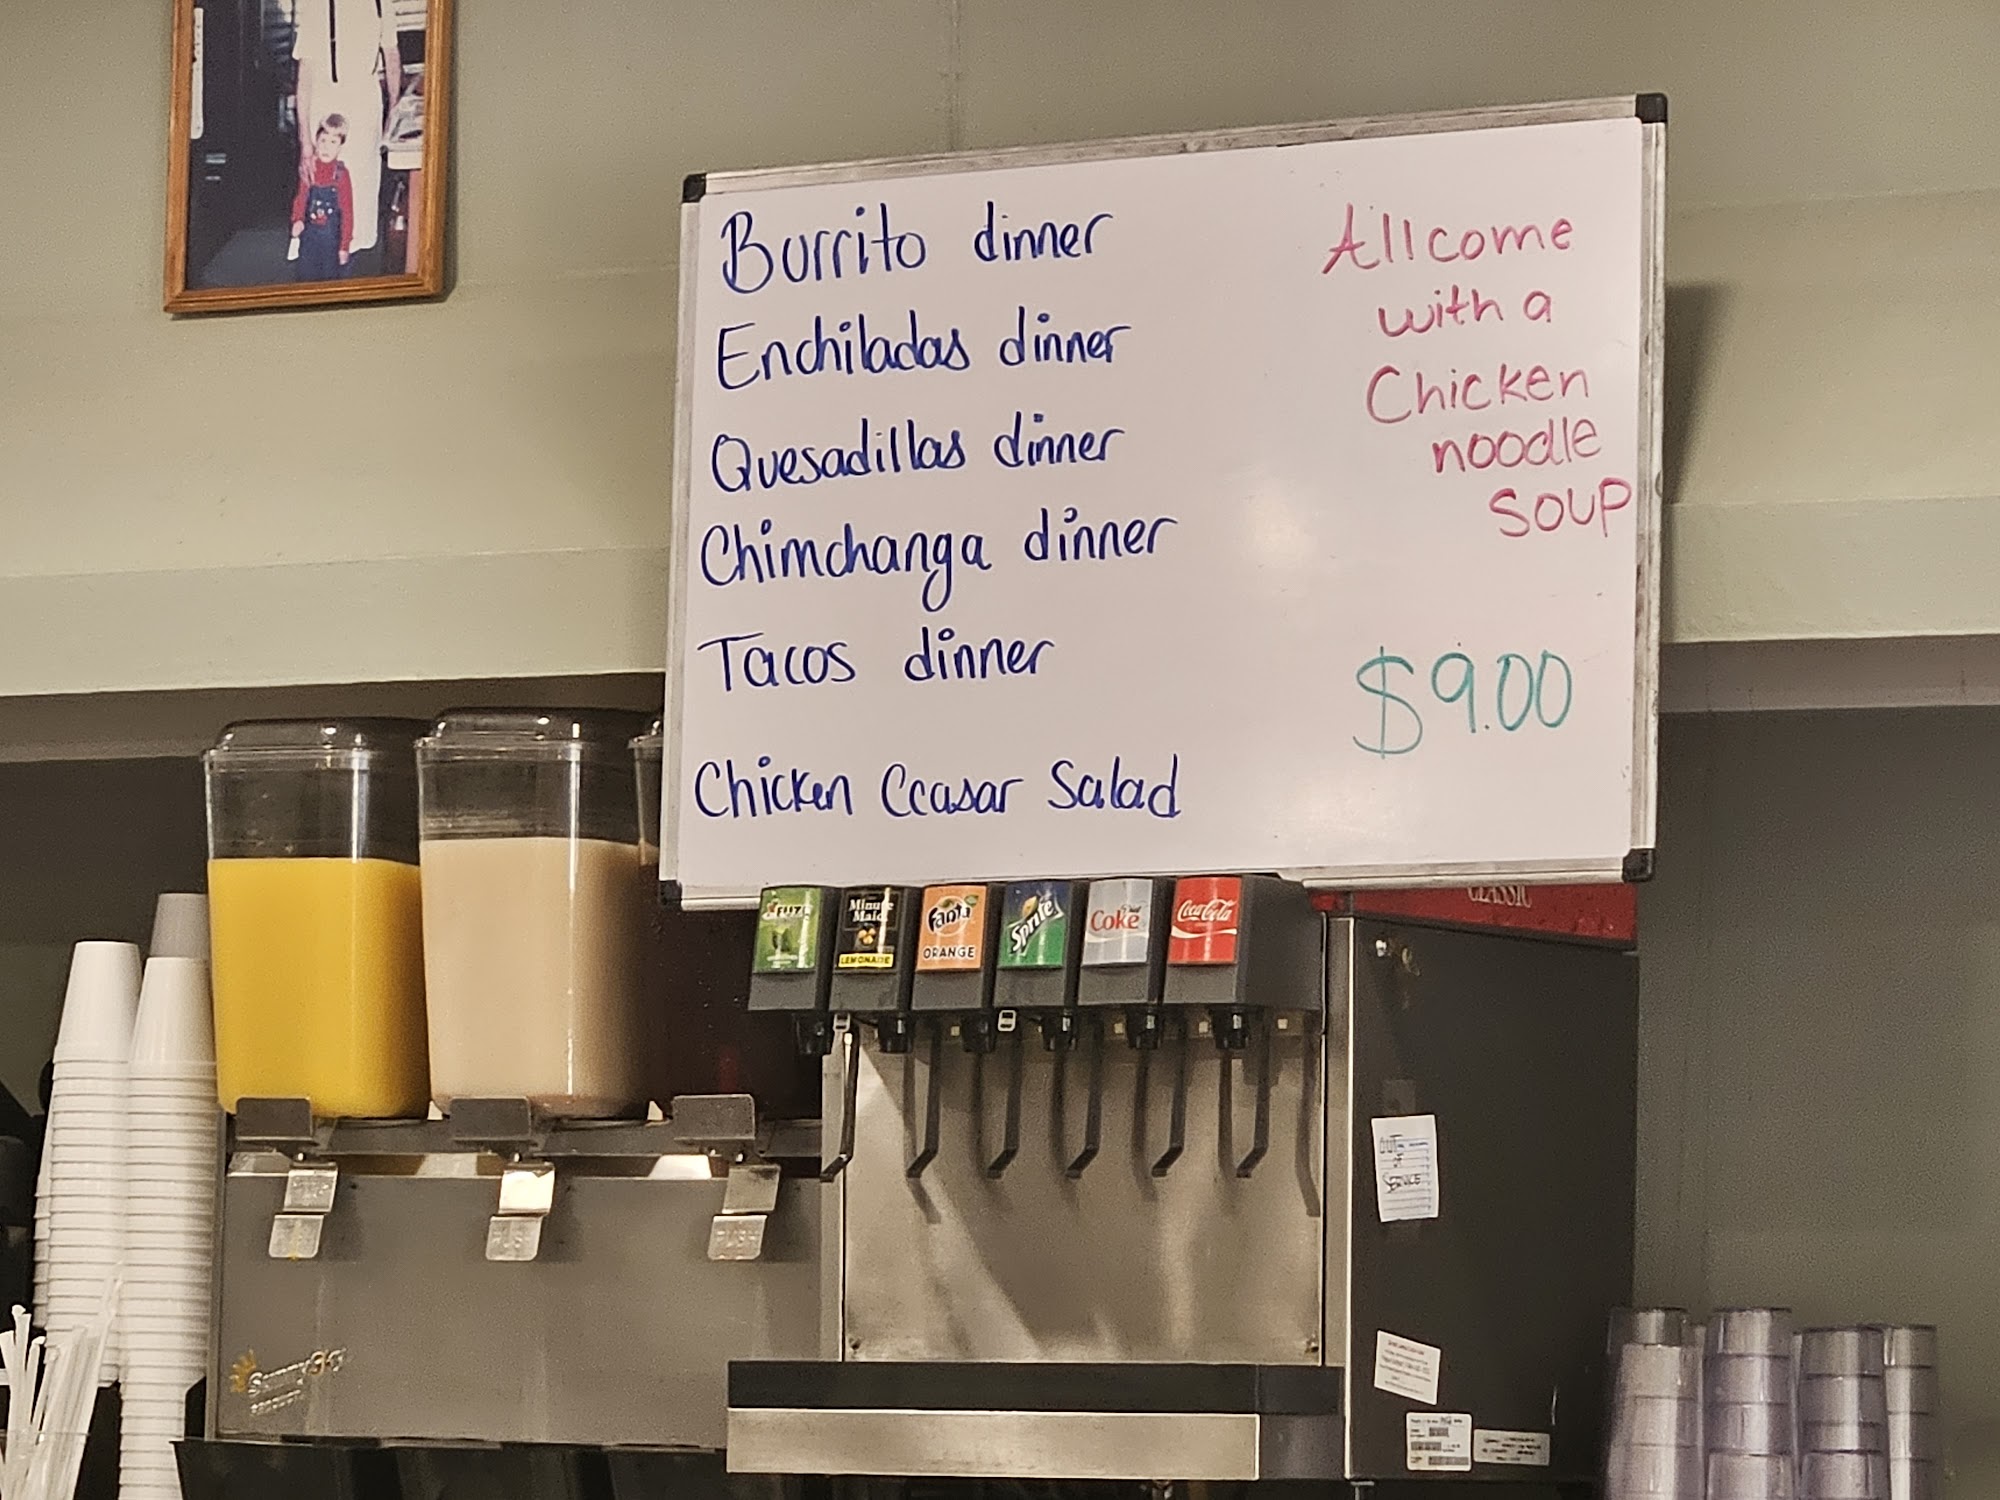 Burrito dinner
Enchiladas dinner
Quesadillas dinner
Chimchanga dinner
Tacos dinner
Chicken Ccasar Salad
All come
with a
Chicken
noodle
soup
$9.00
CLASSIC
FUZE
Minute
Maid
LEMONADE
Fanta
ORANGE
Sprite
Diet
Coke
Coca-Cola
OUT
OF
SERVICE
PUSH
PUSH